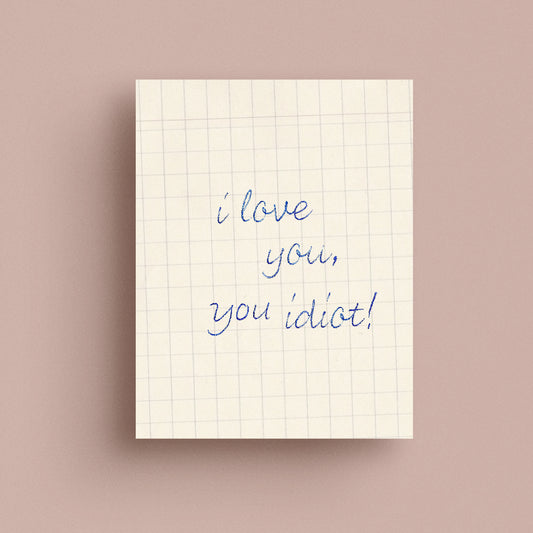 i love
you,
you idiot!